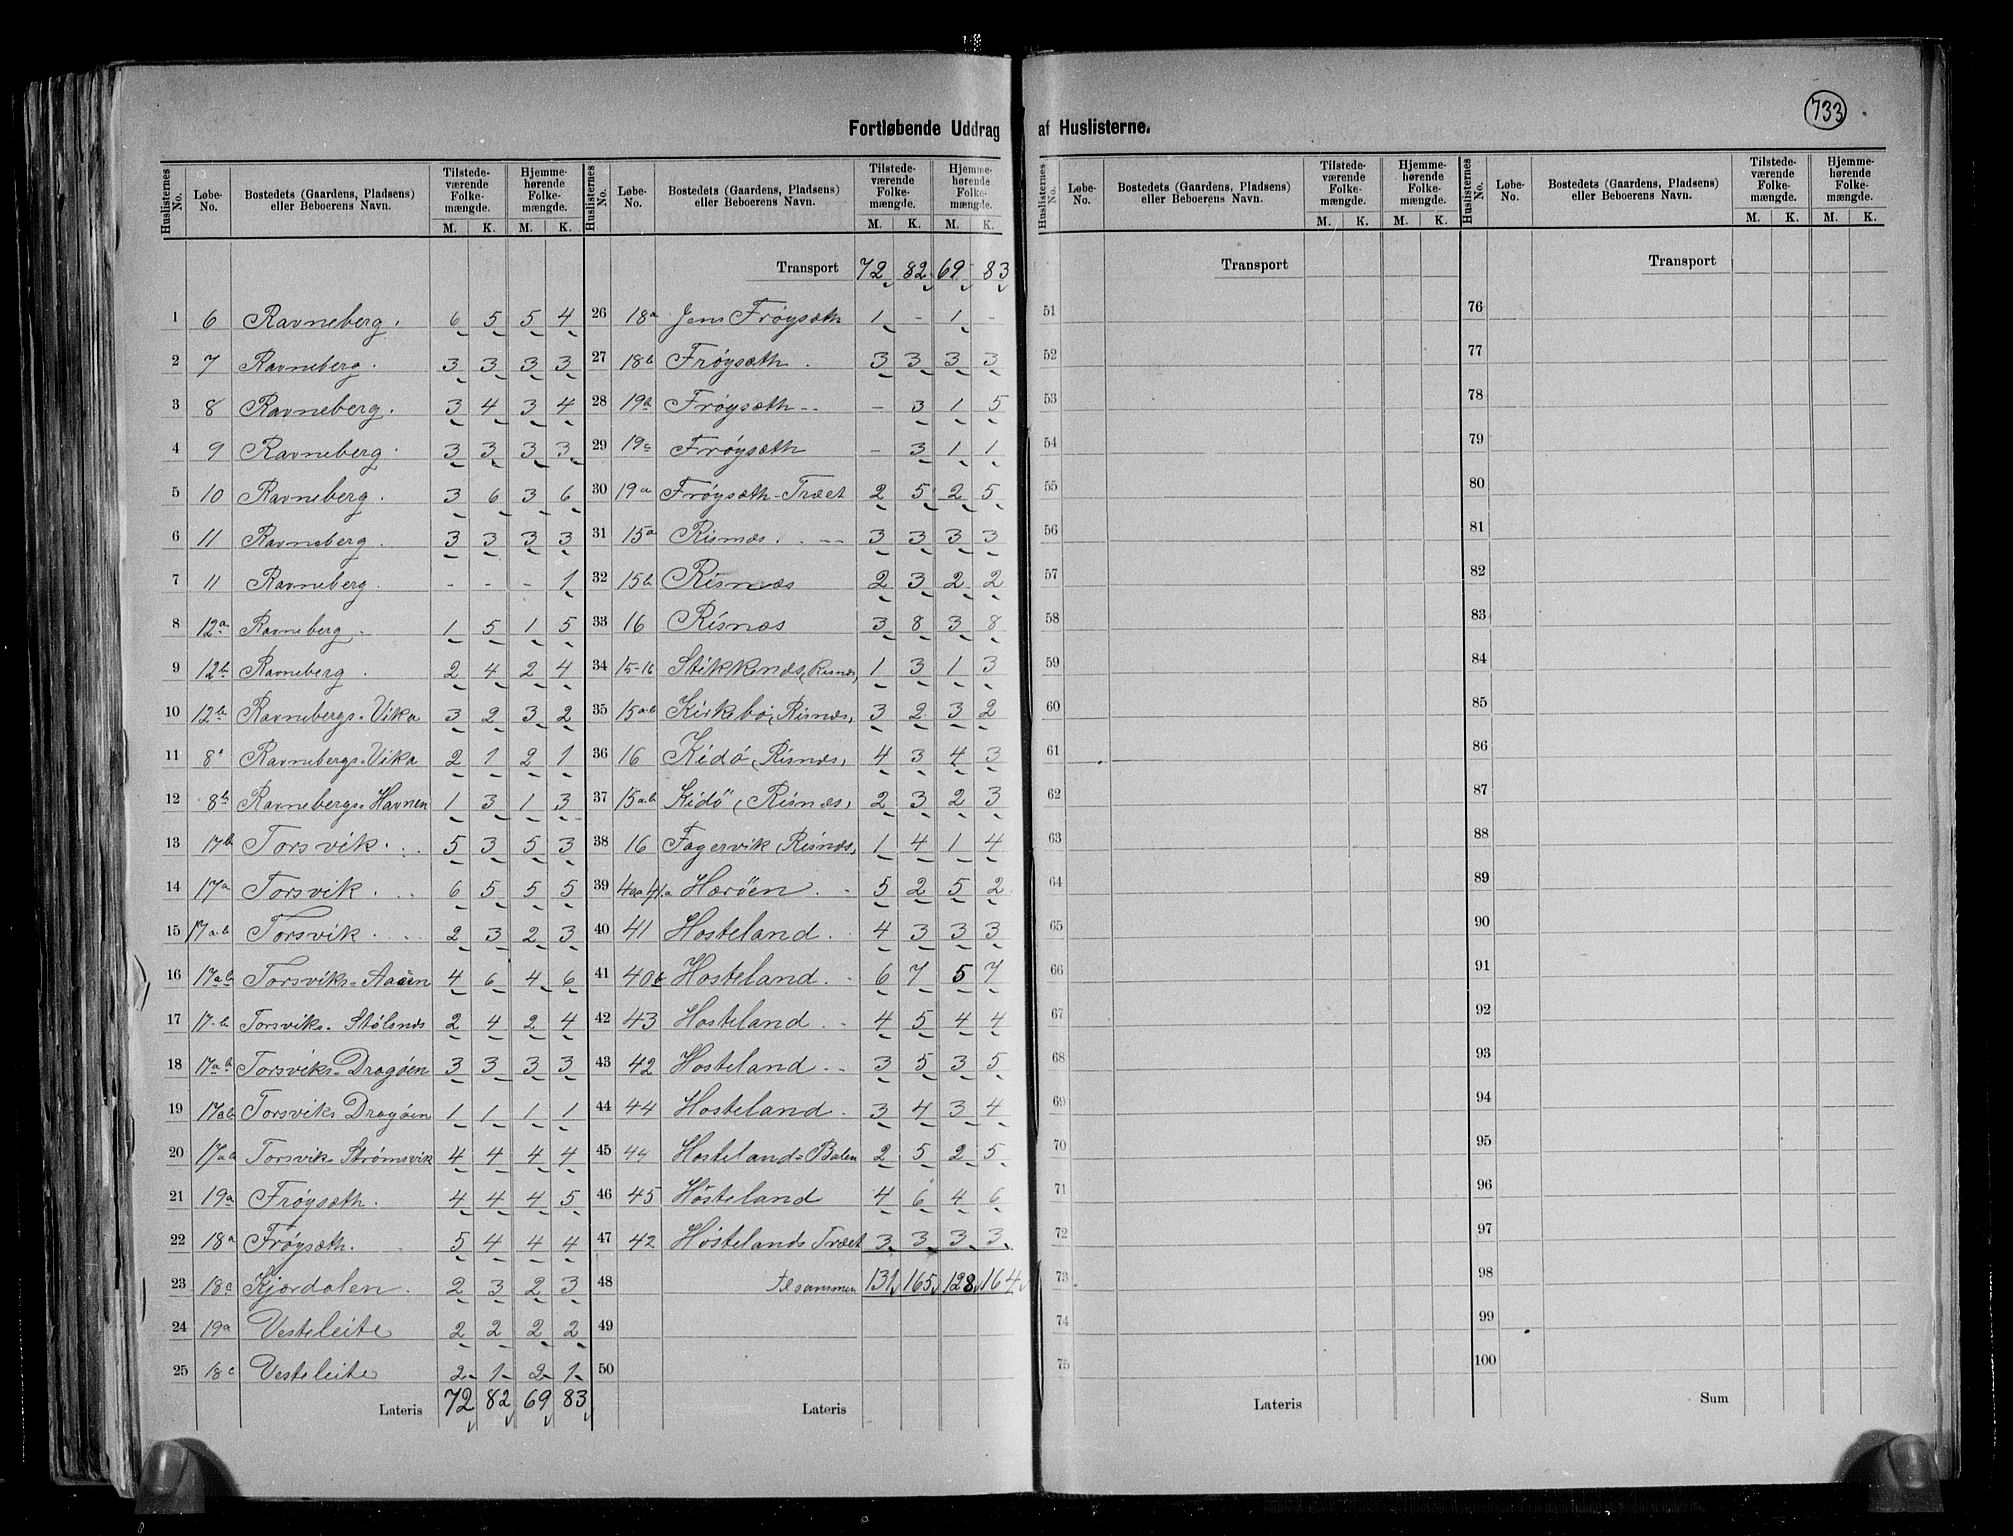 733
Fortløbende Uddrag af Huslisterne.
Huslisternes No. | Løbe-No. | Bostedets (Gaardens, Pladsens) eller Beboerens Navn. | Tilstedeværende Folkemængde. M. K. | Hjemmehørende Folkemængde. M. K.
1 6 Ravneberg. 6 5 5 4
2 7 Ravneberg. 3 3 3 3
3 8 Ravneberg. 3 4 3 4
4 9 Ravneberg. 3 3 3 3
5 10 Ravneberg. 3 6 3 6
6 11 Ravneberg. 3 3 3 3
7 11 Ravneberg. - - - 1
8 12a Ravneberg. 1 5 1 5
9 12b Ravneberg. 2 4 2 4
10 12b Ravnebergs-Vika 3 2 3 2
11 8 Ravnebergs-Vika 2 1 2 1
12 8b Ravnebergs-Havnen 1 3 1 3
13 17b Torsvik. 5 3 5 3
14 17a Torsvik. 6 5 5 5
15 17a-b Torsvik. 2 3 2 3
16 17a-b Torsviks- 4 6 4 6
17 17-b Torsviks-Stølsnæs 2 4 2 4
18 17a-b Torsviks-Dragøen 3 3 3 3
19 17ab Torsviks Dragøen 1 1 1 1
20 17a-b Torsvik-Strømsvik 4 4 4 4
21 19a Frøysæth. 4 4 4 5
22 18a Frøysæth. 5 4 4 4
23 18c Kjørdalen. 2 3 2 3
24 19a Vesteleite 2 2 2 2
25 18c Vesteleite 2 1 2 1
Lateris 72 82 69 83
Huslisternes No. | Løbe-No. | Bostedets (Gaardens, Pladsens) eller Beboerens Navn. | Tilstedeværende Folkemængde. M. K. | Hjemmehørende Folkemængde. M. K.
Transport 72 82 69 83
26 18a Jens Frøysæth 1 - 1 -
27 18b Frøysæth. 3 3 3 3
28 19b Frøysæth-- - 3 1 5
29 19c Frøysæth - 3 1 1
30 19a Frøysæth-Træet 2 5 2 5
31 15a Risnæs. 3 3 3 3
32 15b Risnæs 2 3 2 2
33 16 Risnæs 3 8 3 8
34 15-16 Stikkenæs, Risnæs, 1 3 1 3
35 15a-b Kirkebø, Risnæs, 3 2 3 2
36 16 Kidø, Risnæs, 4 3 4 3
37 15a-b Kidø, Risnæs, 2 3 2 3
38 16 Fagervik, Risnæs, 1 4 1 4
39 40a 41a Hærøen. 5 2 5 2
40 41 Hosteland. 4 3 3 3
41 40b Hosteland. 6 7 5 7
42 43 Hosteland. 4 5 4 4
43 42 Hosteland. 3 5 3 5
44 44 Hosteland. 3 4 3 4
45 44 Hosteland-Balen 2 5 2 5
46 45 Hosteland 4 6 4 6
47 42 Hostelands Træet 3 3 3 3
48 Tilsammen 131 165 128 164
49
50
Lateris
Huslisternes No. | Løbe-No. | Bostedets (Gaardens, Pladsens) eller Beboerens Navn. | Tilstedeværende Folkemængde. M. K. | Hjemmehørende Folkemængde. M. K.
Transport
51
52
53
54
55
56
57
58
59
60
61
62
63
64
65
66
67
68
69
70
71
72
73
74
75
Lateris
Huslisternes No. | Løbe-No. | Bostedets (Gaardens, Pladsens) eller Beboerens Navn. | Tilstedeværende Folkemængde. M. K. | Hjemmehørende Folkemængde. M. K.
Transport
76
77
78
79
80
81
82
83
84
85
86
87
88
89
90
91
92
93
94
95
96
97
98
99
100
Sum